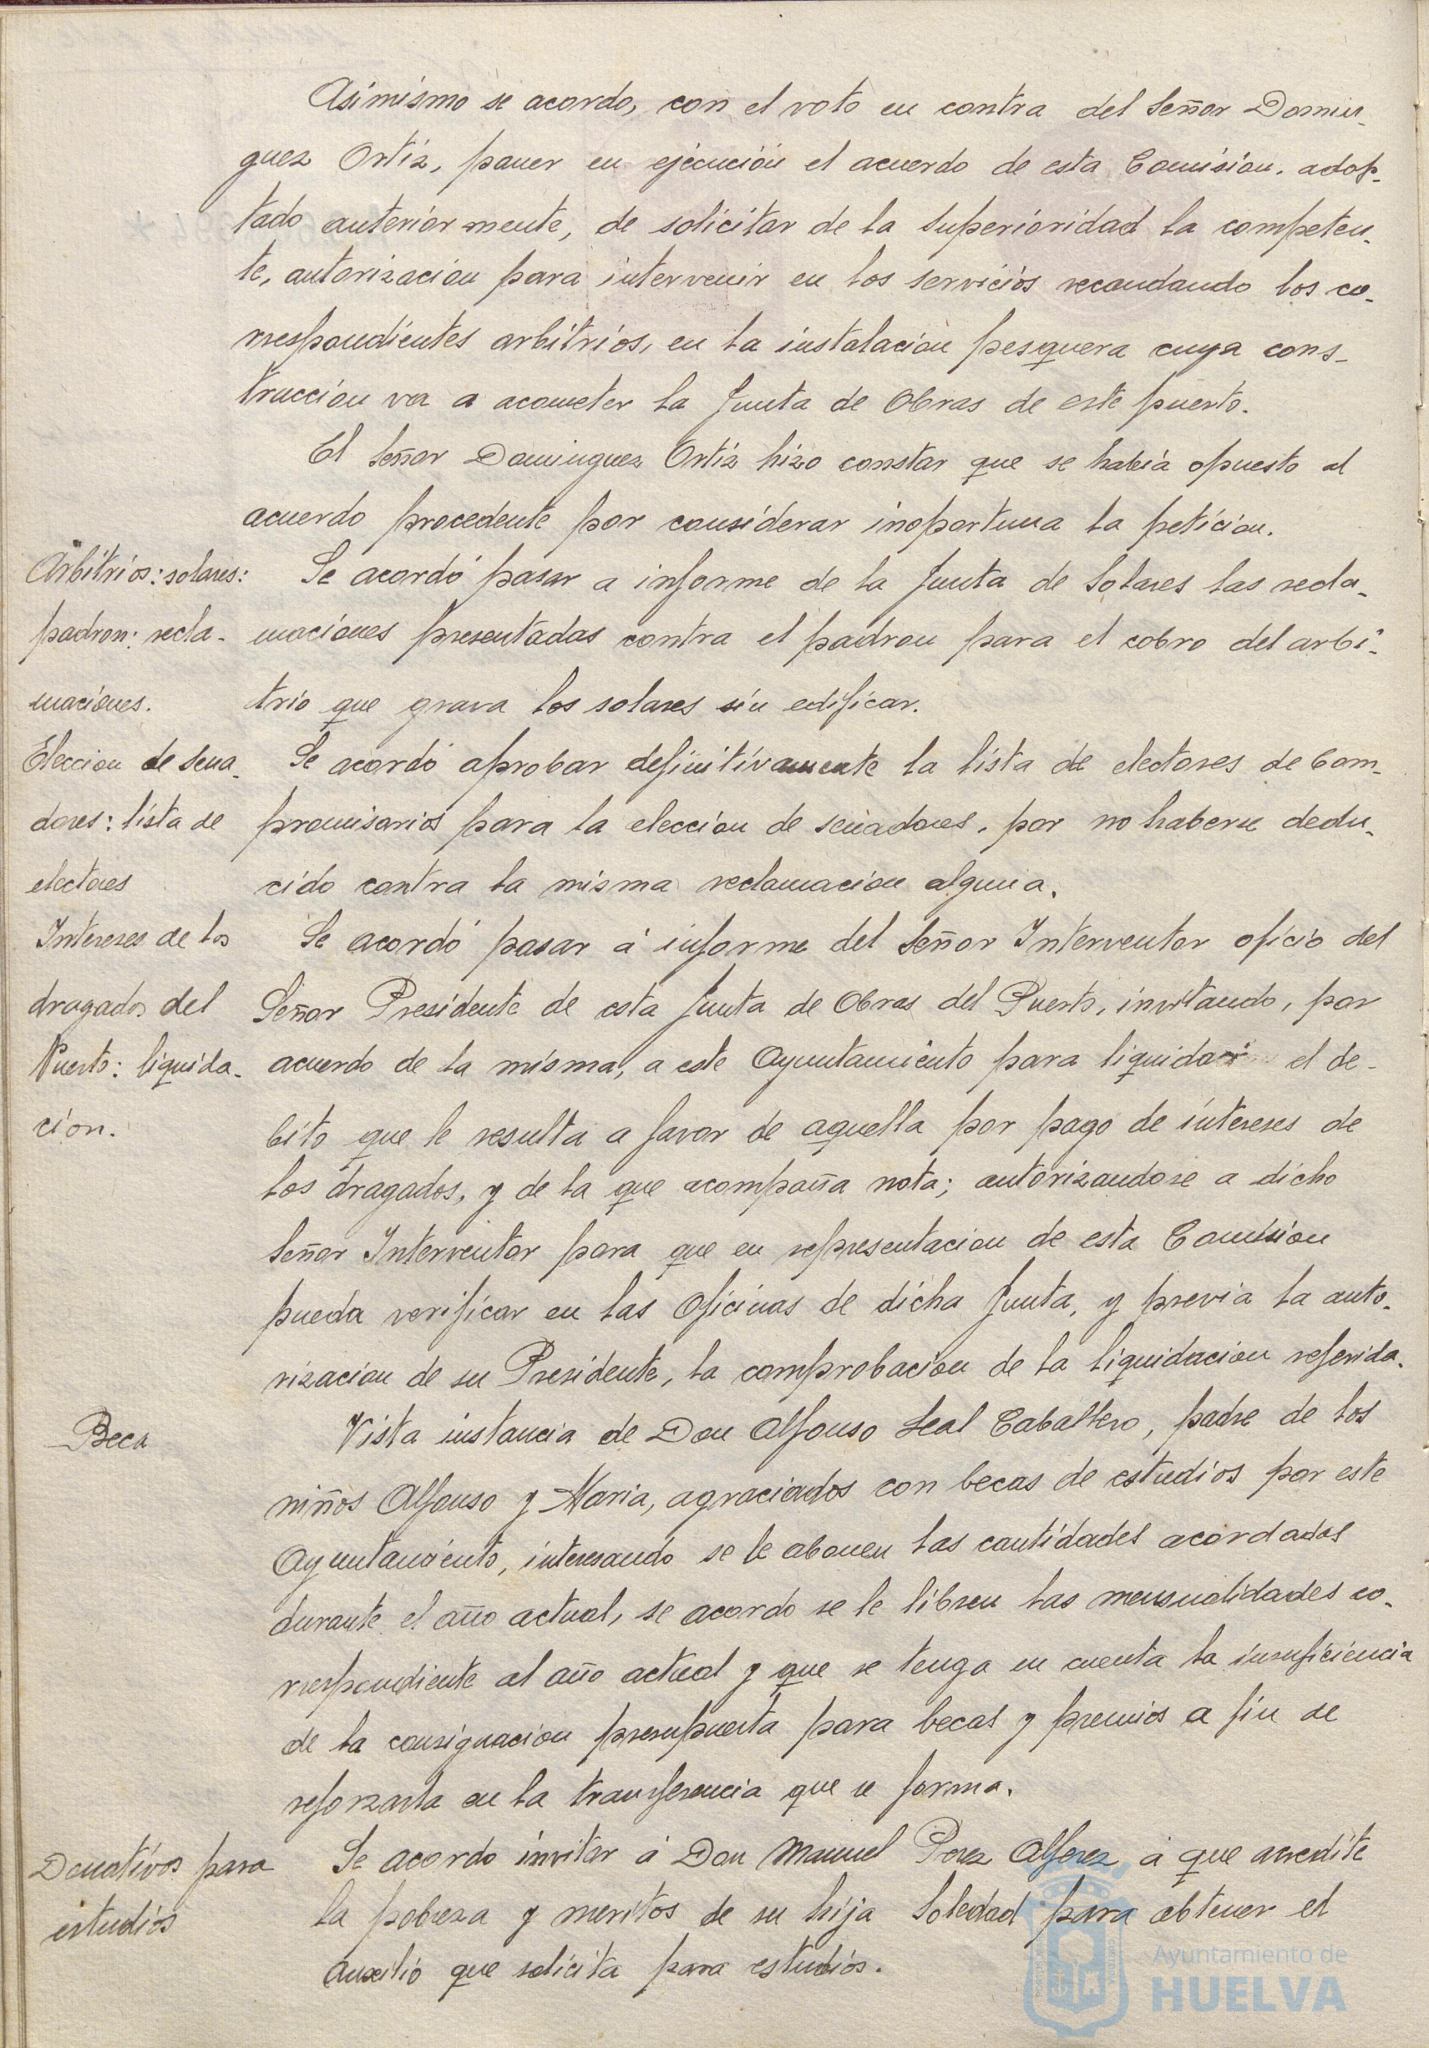 Asimismo se acordo, con el voto en contra del Señor Domin-
guez Ortiz, poner en ejecución el acuerdo de esta Comisión, adop-
tado anteriormente, de solicitar de la Superioridad la competen-
te, autorizacion para intervenir en los servicios recaudando los co-
rrespondientes arbitrios, en la instalacion pesquera cuya cons-
truccion va a acometer la Junta de Obras de este puerto.
El Señor Dominguez Ortiz hizo constar que se habia opuesto al
acuerdo procedente por considerar inoportuna la peticion.
Arbitrios: solares:
padron: recla-
maciones.
Se acordó pasar a informe de la Junta de Solares las recla-
maciones presentadas contra el padron para el cobro del arbi-
trio que grava los solares sin edificar.
Eleccion de sena-
dores: lista de
electores
Se acordó aprobar definitivamente la lista de electores de Com-
promisarios para la eleccion de senadores, por no haberse dedu-
cido contra la misma reclamacion alguna.
Intereses de los
dragados del
Puerto: liquida-
cion.
Se acordó pasar á informe del Señor Interventor oficio del
Señor Presidente de esta Junta de Obras del Puerto, invitando, por
acuerdo de la misma, a este Ayuntamiento para liquidar el de-
bito que le resulta a favor de aquella por pago de intereses de
los dragados, y de la que acompaña nota; autorizandose a dicho
Señor Interventor para que en representacion de esta Comision
pueda verificar en las Oficinas de dicha Junta, y previa la auto-
rizacion de su Presidente, la comprobacion de la liquidacion referida.
Beca
Vista instancia de Don Alfonso Leal Caballero, padre de los
niños Alfonso y Maria, agraciados con becas de estudios por este
Ayuntamiento, interesando se le abonen las cantidades acordadas
durante el año actual, se acordo se le libren las mensualidades co-
rrespondiente al año actual y que se tenga en cuenta la insuficiencia
de la consignacion presupuesta para becas y premios a fin de
reforzarla en la transferencia que se forma.
Donativos para
estudios
Se acordo invitar á Don Manuel Perez Alferez á que acredite
la pobreza y meritos de su hija Soledad para obtener el
auxilio que solicita para estudios.
Ayuntamiento de
HUELVA